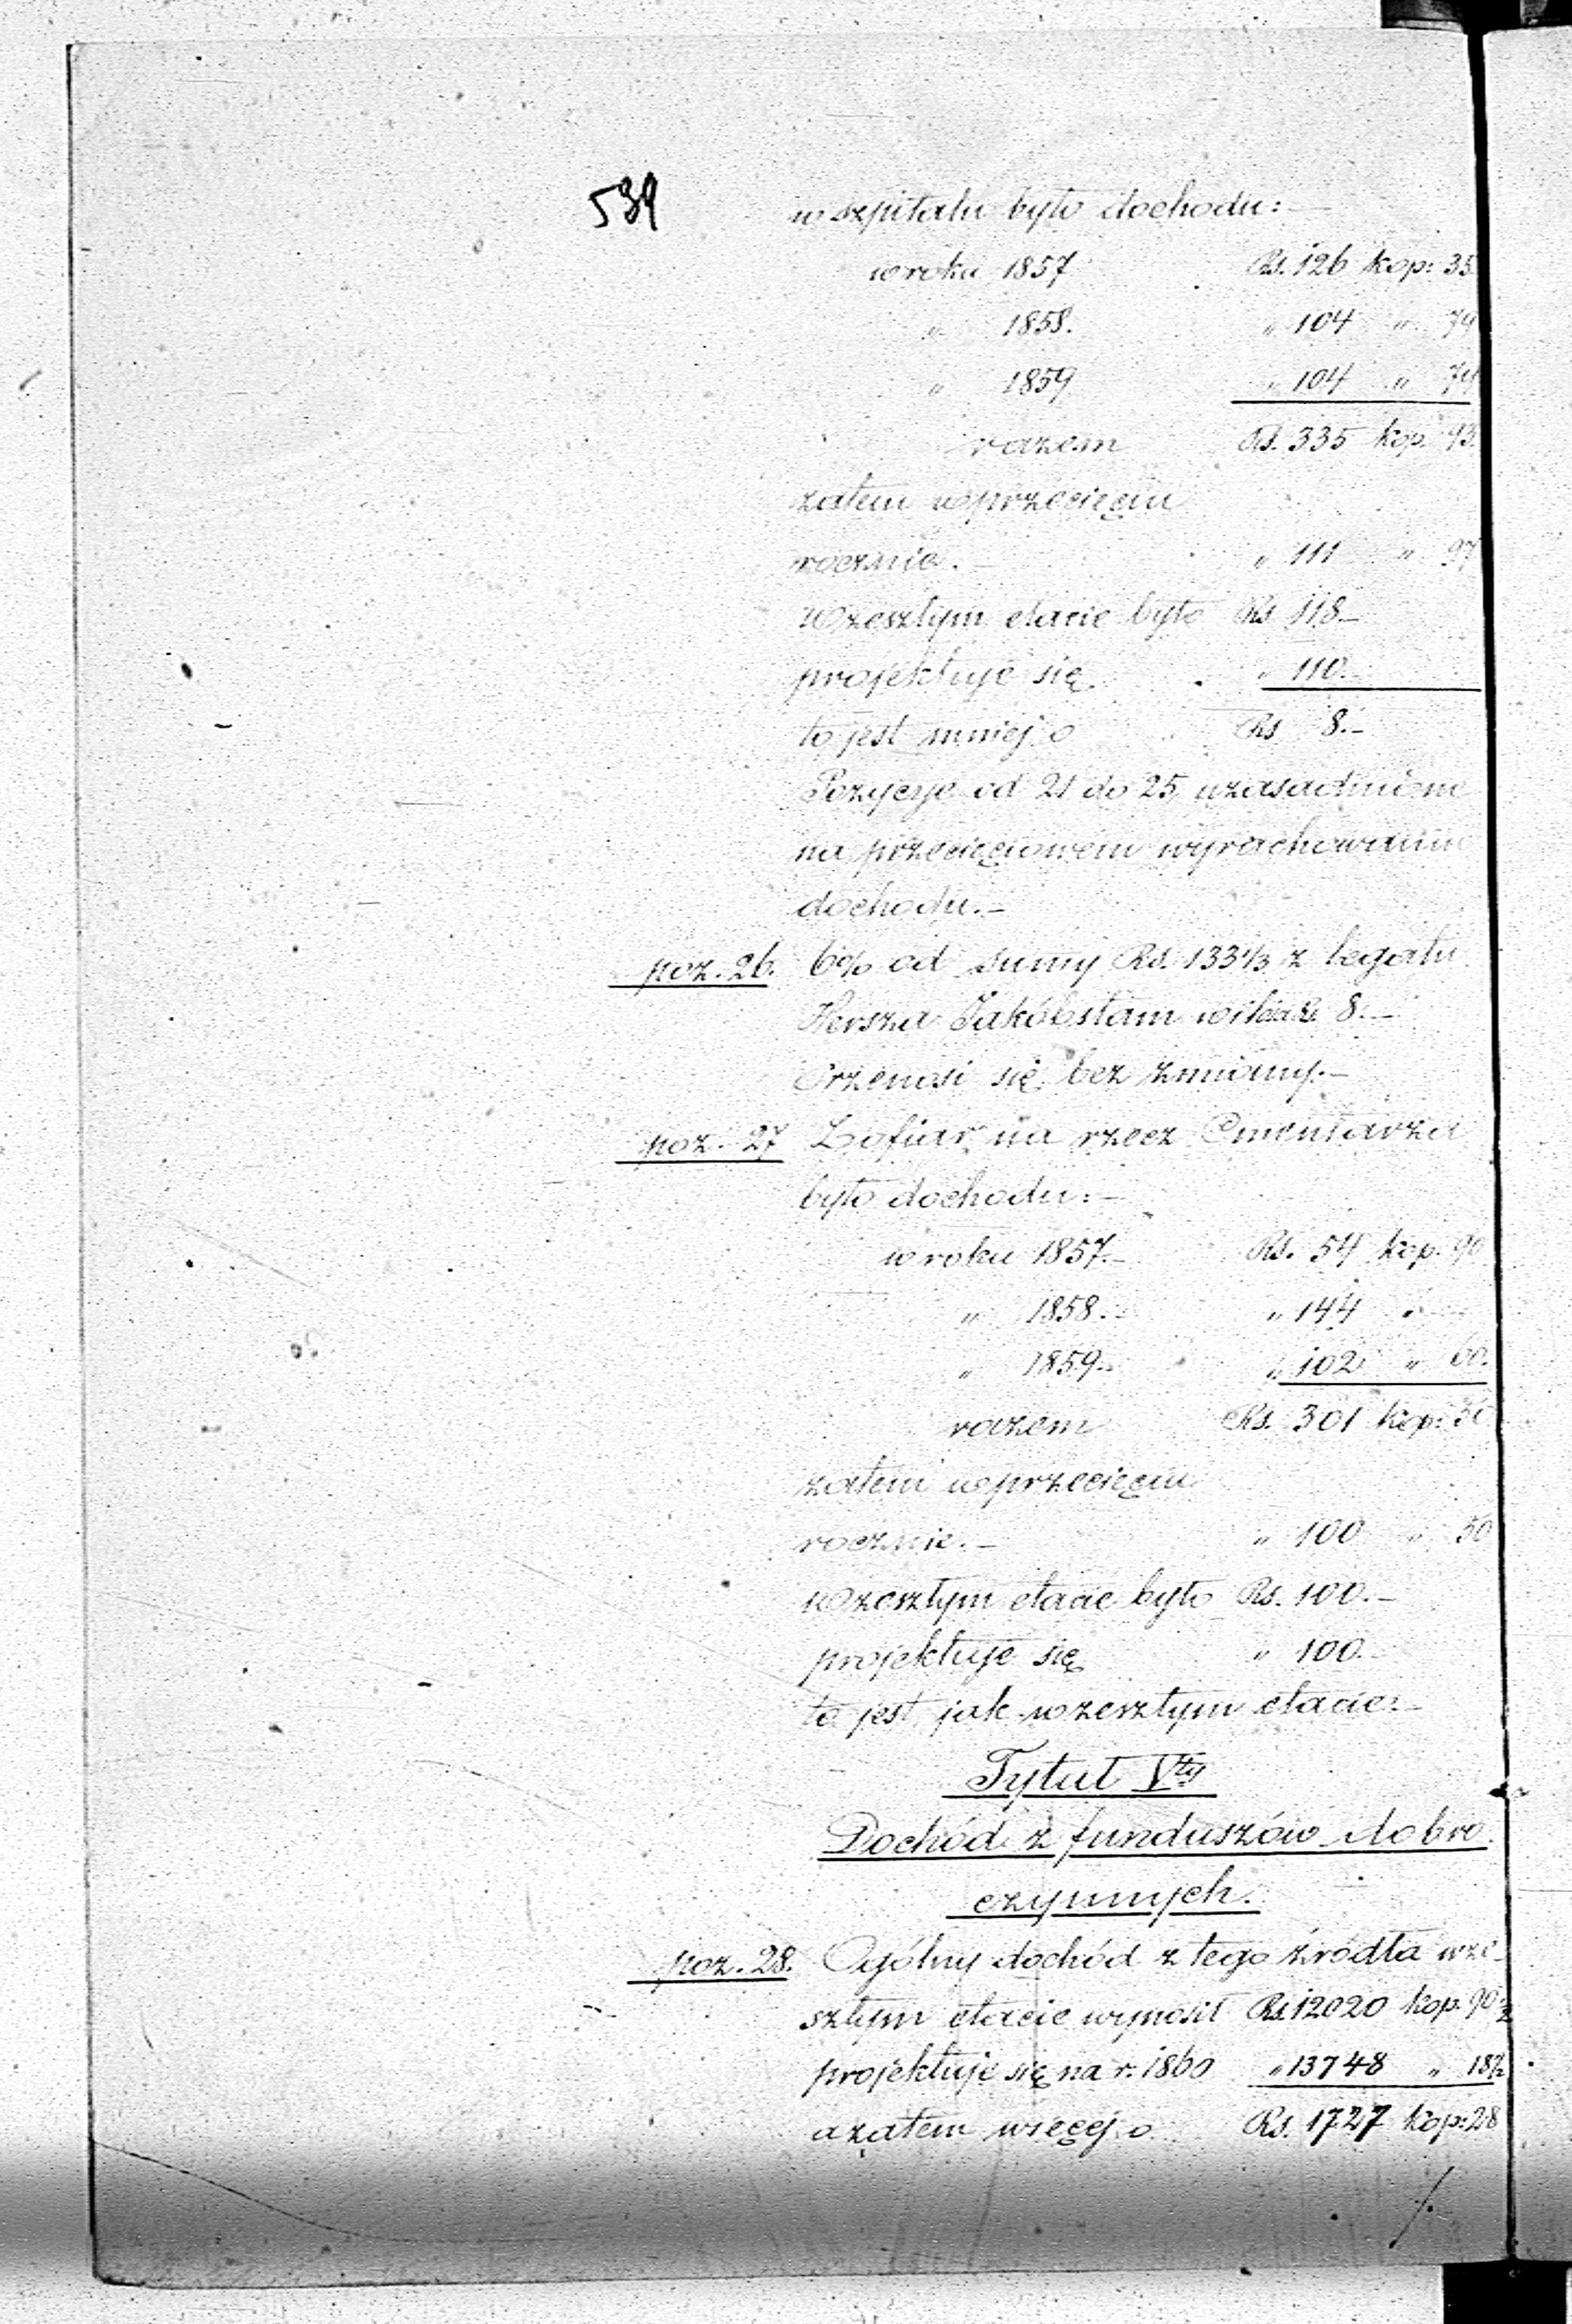 539
w szpitalu było dochodu:—
w roku 1857 Rs. 126 kop: 35
" 1858. " 104 " 79
" 1859 " 104 " 79
razem Rs. 335 kop. 93.
zatem w przecięciu
rocznie.— " 111 " 97
w zeszłym etacie było Rs 118—
projektuje się. " 110.—
to jest mniej o Rs 8.—
Pozycye od 21 do 25 uzasadnione
na przecięciowem wyrachowaniu
dochodu.—
poz. 26. 6% od sumy Rs. 133 1/3 z legatu
Hersza Jakóbsłam 8.—
Przenosi się bez zmiany.—
poz. 27 Z ofiar na rzecz Cmentarza
było dochodu:—
w roku 1857.— Rs. 54 kop. 90
" 1858.— " 144 "
" 1859.— " 102 " 60.
razem Rs. 301 kop: 50
zatem w przecięciu
rocznie.— " 100 " 50
w zeszłym etacie było Rs. 100.—
projektuje się " 100.—
to jest jak w zeszłym etacie:—
Tytuł Vty
Dochód z funduszów dobro
czynnych.
poz. 28. Ogólny dochód z tego źródła w ze-
szłym etacie wynosił Rs. 12020 kop. 90
projektuje się na r. 1860 " 13748 " 18½
a zatem więcej o Rs. 1727 kop: 28
/.